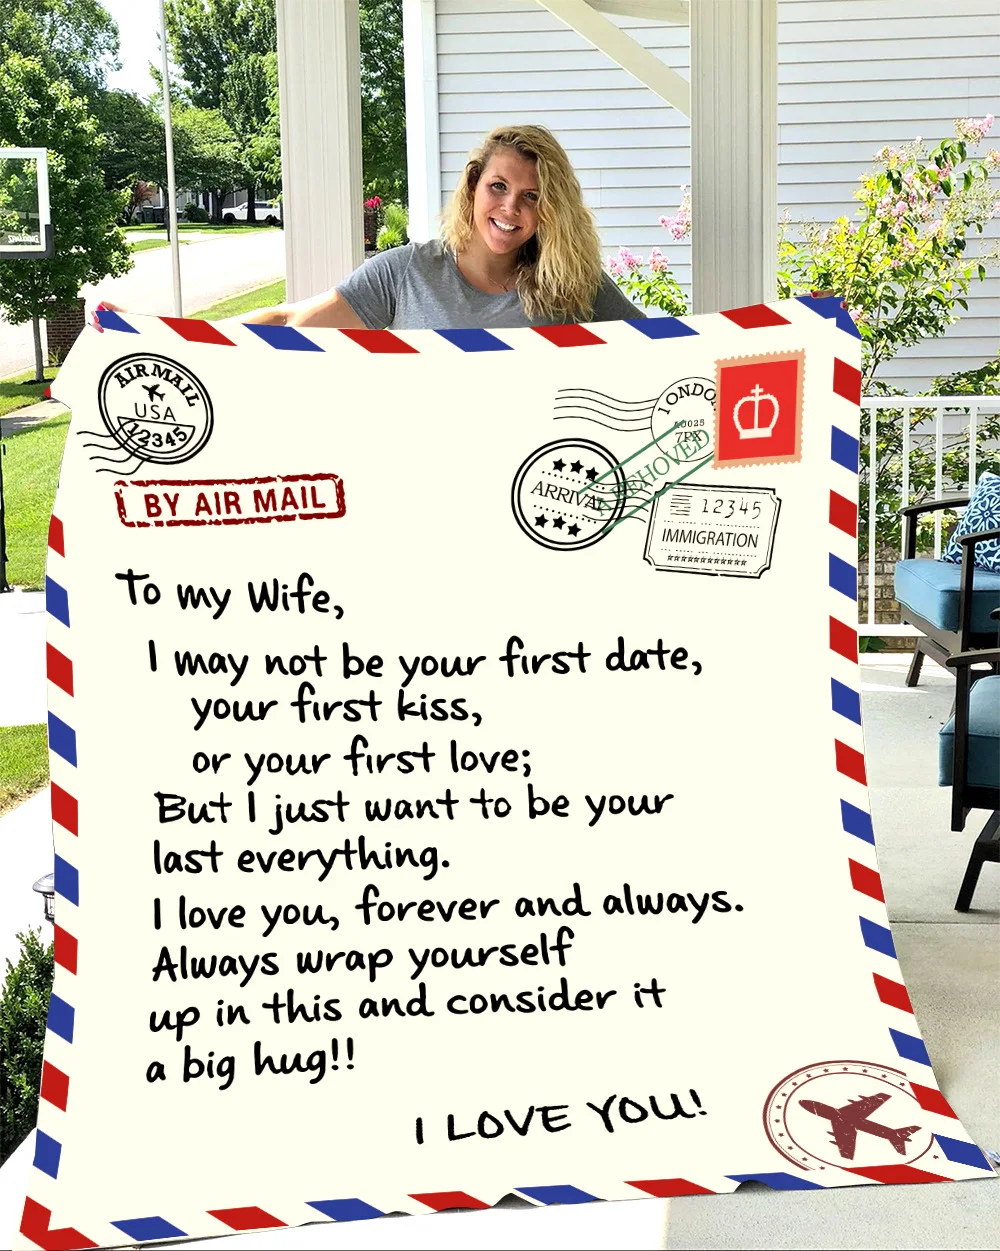 AIR MAIL
USA
12345
BY AIR MAIL
LONDO
40025
ARRIVAL
12345
IMMIGRATION
To my Wife,
I may not be your first date,
your first kiss,
or your first love;
But I just want to be your
last everything.
I love you, forever and always.
Always wrap yourself
up in this and consider it
a big hug!!
I LOVE YOU!